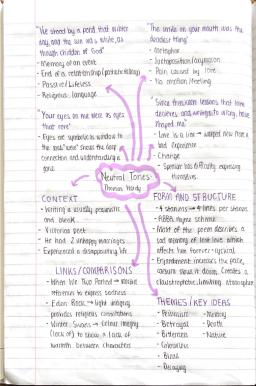 "We stood by a pond that winter
day, and the sun was white, as
though chidden of God"
- Memory of an event
- End of a relationship (pathetic fallacy)
- Passive/Lifeless
- Religious language
"The smile on your mouth was the
deadest thing"
- Metaphor
- Juxtaposition/oxymoron
- Pain caused by love
- No emotion/feeling
"Your eyes on me were as eyes
that rove"
- Eyes are symbolic as window to
the soul
connection and understanding is
gone
"Since then, keen lessons that love
deceives, and wrings with wrong, have
shaped me"
- Love is a liar → warped view from a
bad experience
- Change
- Speaker has difficulty expressing
themselves
Neutral Tones-
Thomas Hardy
CONTEXT
- Writing is usually pessimistic
and bleak
- Victorian poet
- He had 2 unhappy marriages
- Experienced a disappointing life
FORM AND STRUCTURE
- 4 stanzas → 4 lines per stanza
- ABBA rhyme scheme
- Most of the poem describes a
sad memory of lost love which
affects him forever - cyclical
- Enjambment increases the pace,
caesura slows it down. Creates a
claustrophobic, limiting atmosphere
LINKS/COMPARISONS
- When We Two Parted →
reference to express sadness
- Eden Rock → light imagery
provides religious connotations
- Winter Swans → Colour imagery
(lack of) to show a lack of
warmth between characters
THEMES/KEY IDEAS
- Pessimistic
- Betrayal
- Bitterness
- Colourless
- Bleak
- Decaying
- Memory
- Death
- Nature